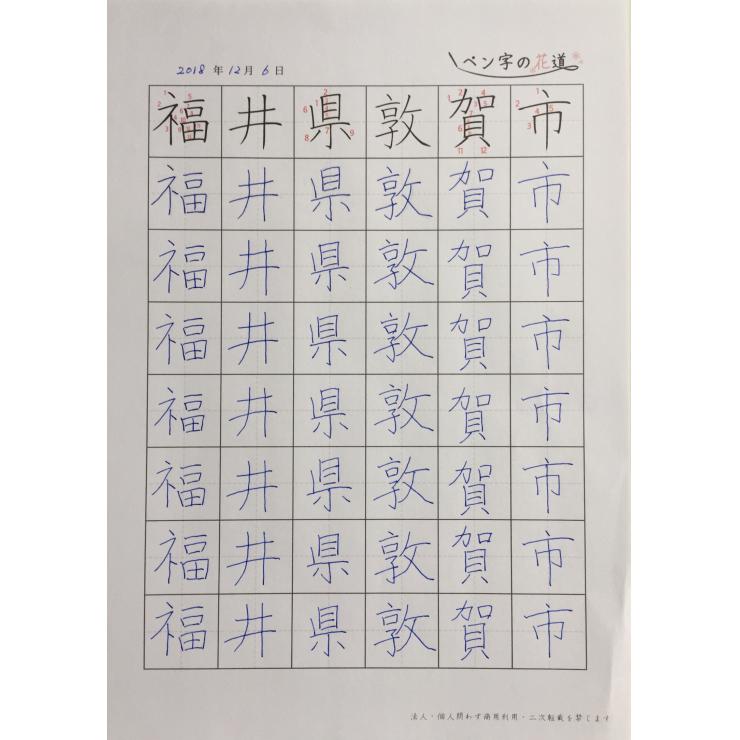 2018年12月6日
ペン字の花道
福井県敦賀市
福井県敦賀市
福井県敦賀市
福井県敦賀市
福井県敦賀市
福井県敦賀市
福井県敦賀市
福井県敦賀市
法人・個人問わず商用利用・二次転載を禁じます